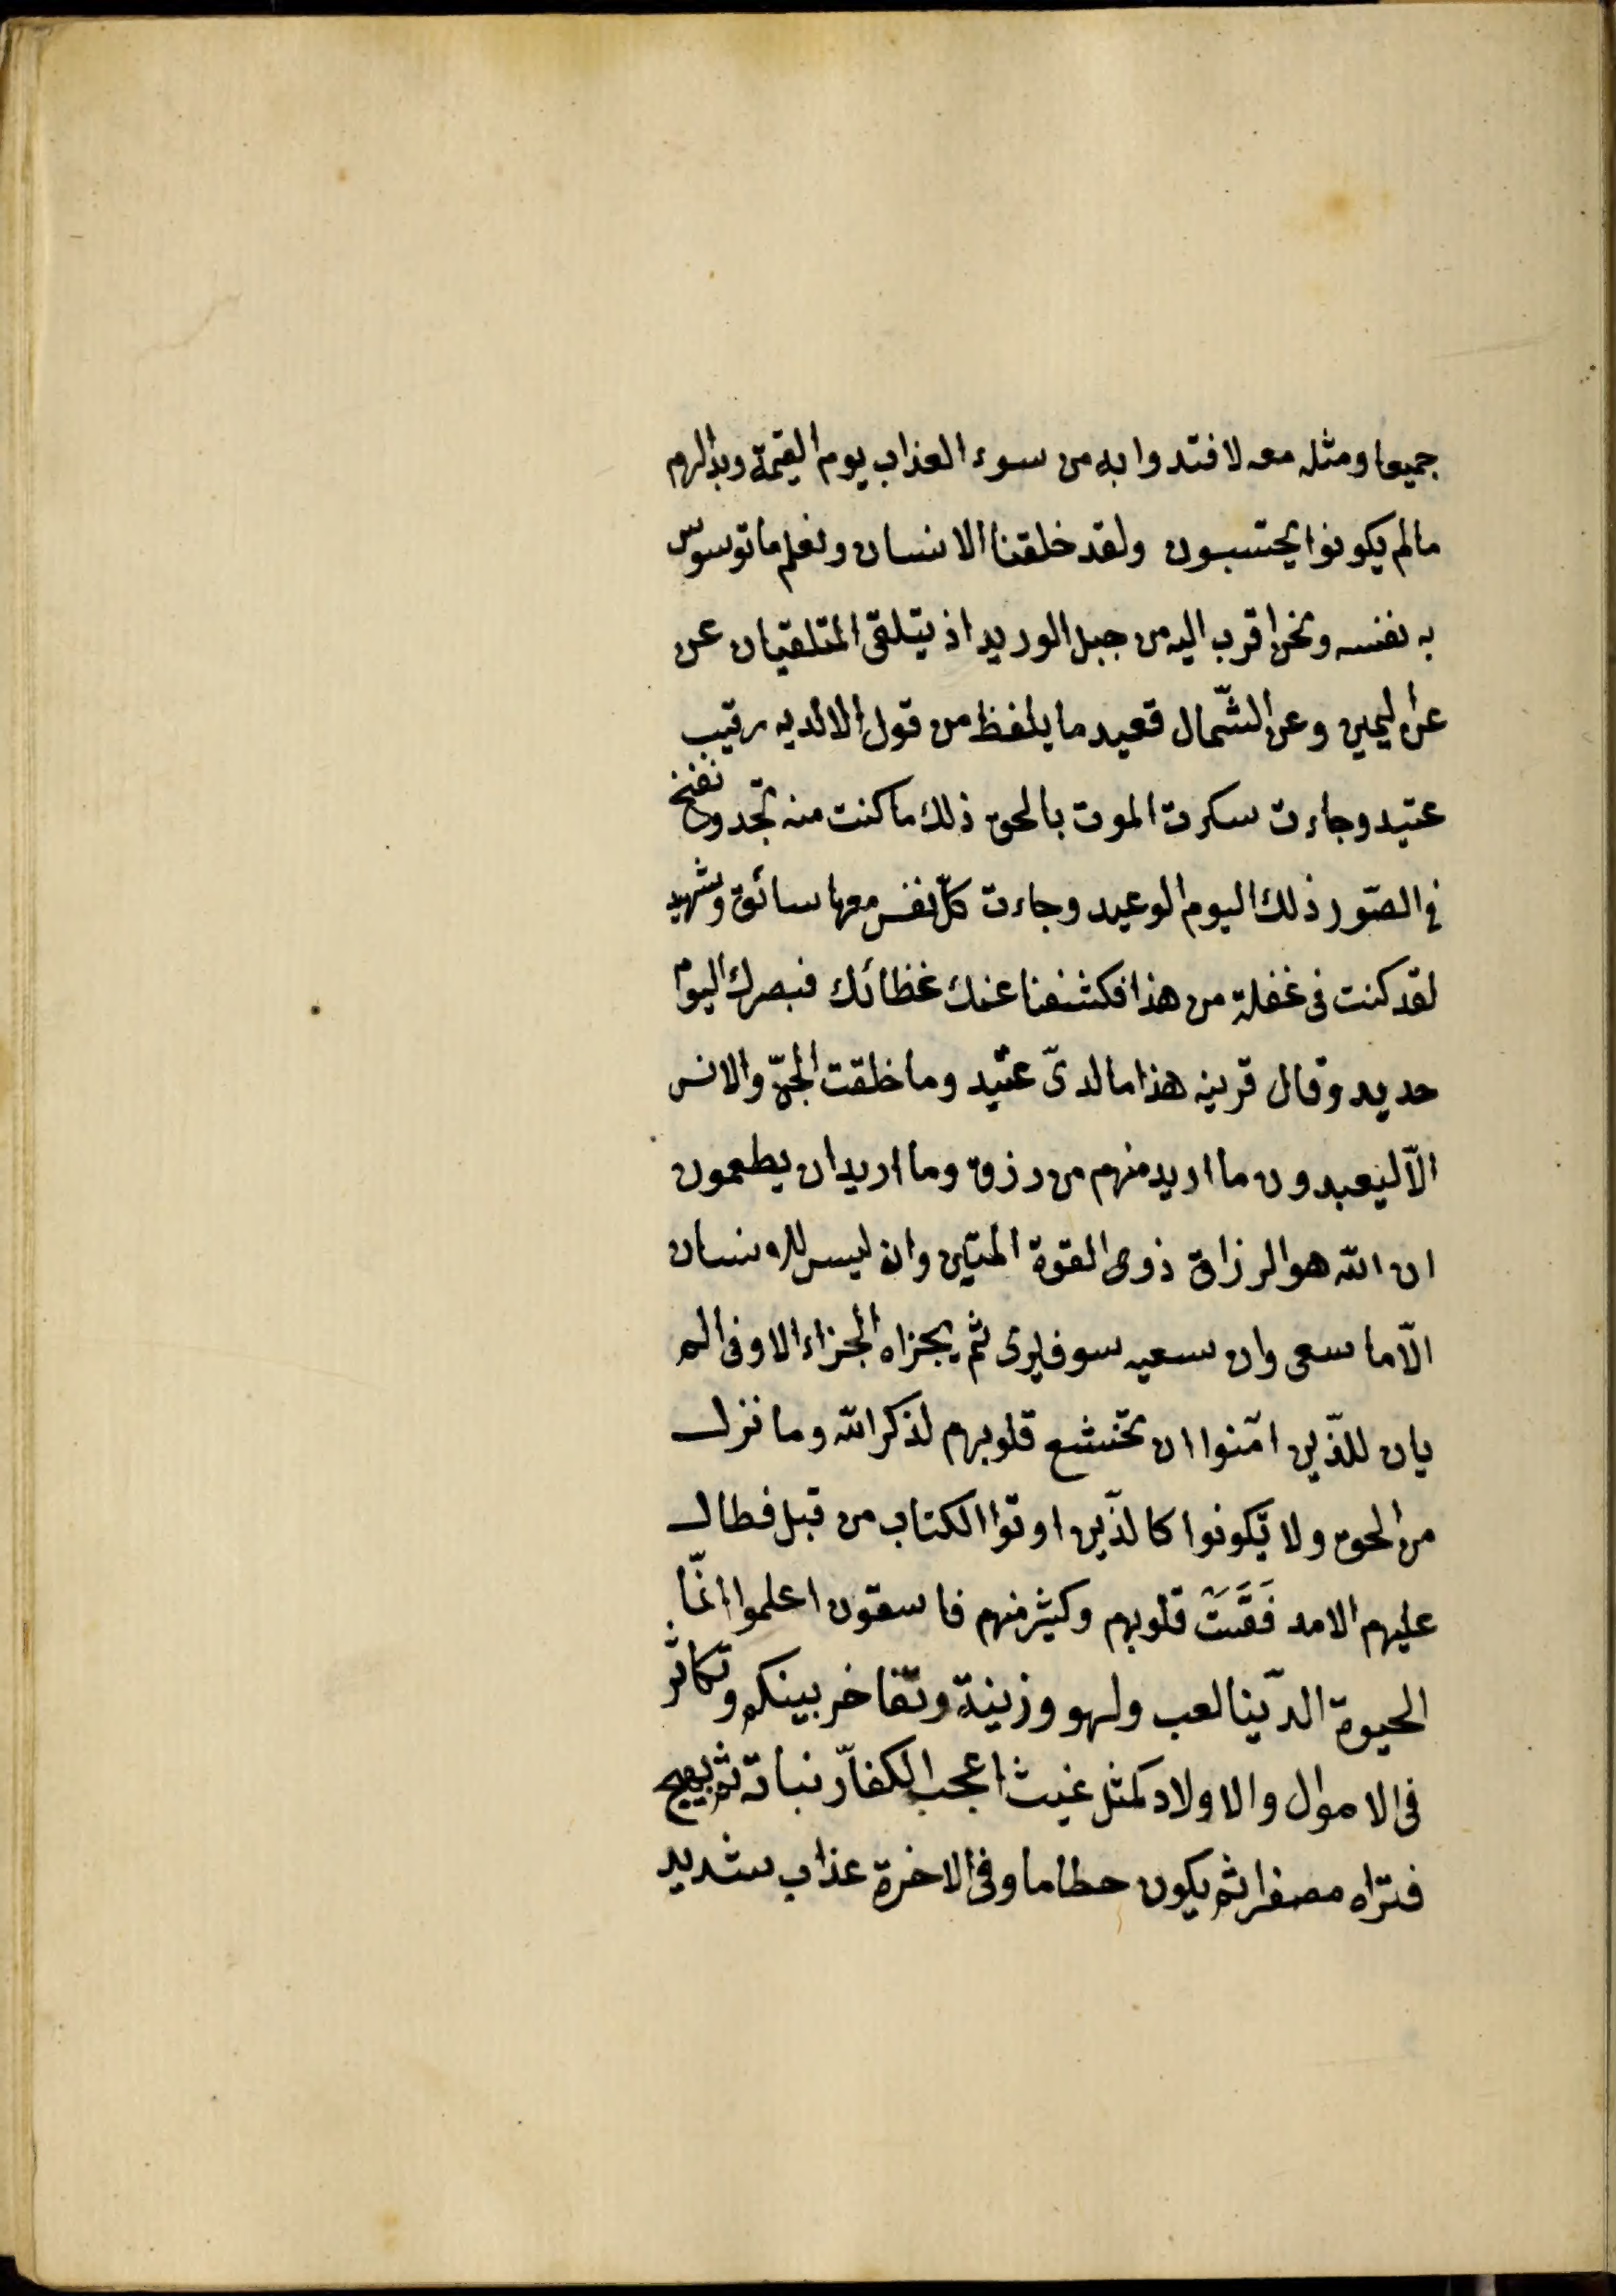 جميعا ومثله معه لافتدوا به من سوء العذاب يوم القيمة وبدالهم
مالم يكونوا يحتسبون ولقد خلقنا الانسان ونعلم ما توسوس
به نفسه ونحن اقرب اليه من جبل الوريد اذ يتلقى المتلقيان عن
عن اليمين وعن الشّمال قعيد ما يلفظ من قول الا لديه رقيب
عتيد وجاءت سكرت الموت بالحق ذلك ما كنت منه تجد ونفخ
فى الصّور ذلك اليوم الوعيد وجاءت كلّ نفس معها سائق وشهيد
لقد كنت فى غفلة من هذا فكشفنا عنك غظائك فبصرك اليوم
حديد وقال قرينه هذا ما لدىّ عتيد وما خلقت الجنّ والانس
الّا ليعبدون ما اريد منهم من رزق وما اريد ان يطعمون
ان الله هو الرزاق ذوى القوة المتين وان ليس للانسان
الّا ما سعى وان سعيه سوف يرى ثم يجزاه الجزاء الاوفى الم
يان للذّين امّنوا ان تخشع قلوبهم لذكر الله وما نزل
من الحق ولا يكونوا كالذّين اوتوا الكتاب من قبل فطال
عليهم الامد فَقَسَتْ قلوبهم وكثير منهم فاسقون اعلموا انّما
الحيوة الدّينا لعب ولهو وزينة وتفاخر بينكم وتكاثر
فى الاموال والاولاد كمثل غيث اعجب الكفاّر نباته ثم يهيج
فتراه مصفرا ثم يكون حطاما وفى الاخرة عذاب شديد